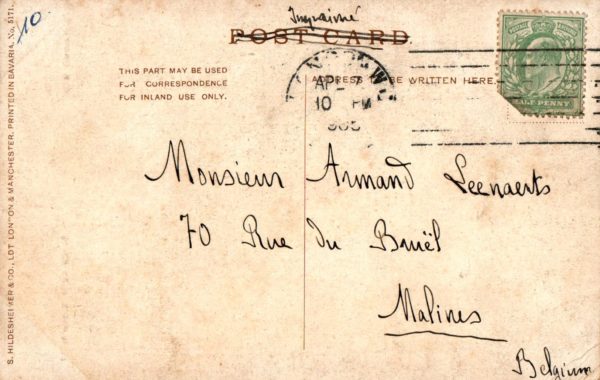 10
Imprimé
POST CARD
THIS PART MAY BE USED
FOR CORRESPONDENCE
FOR INLAND USE ONLY.
ADDRESS BE WRITTEN HERE.
AP 7
10 PM
HALF PENNY
Monsieur Armand Leenaerts
70 Rue du Bruël
Malines
Belgium
S. HILDESHEIMER & CO., LDT. LONDON & MANCHESTER. PRINTED IN BAVARIA. No. 5171.